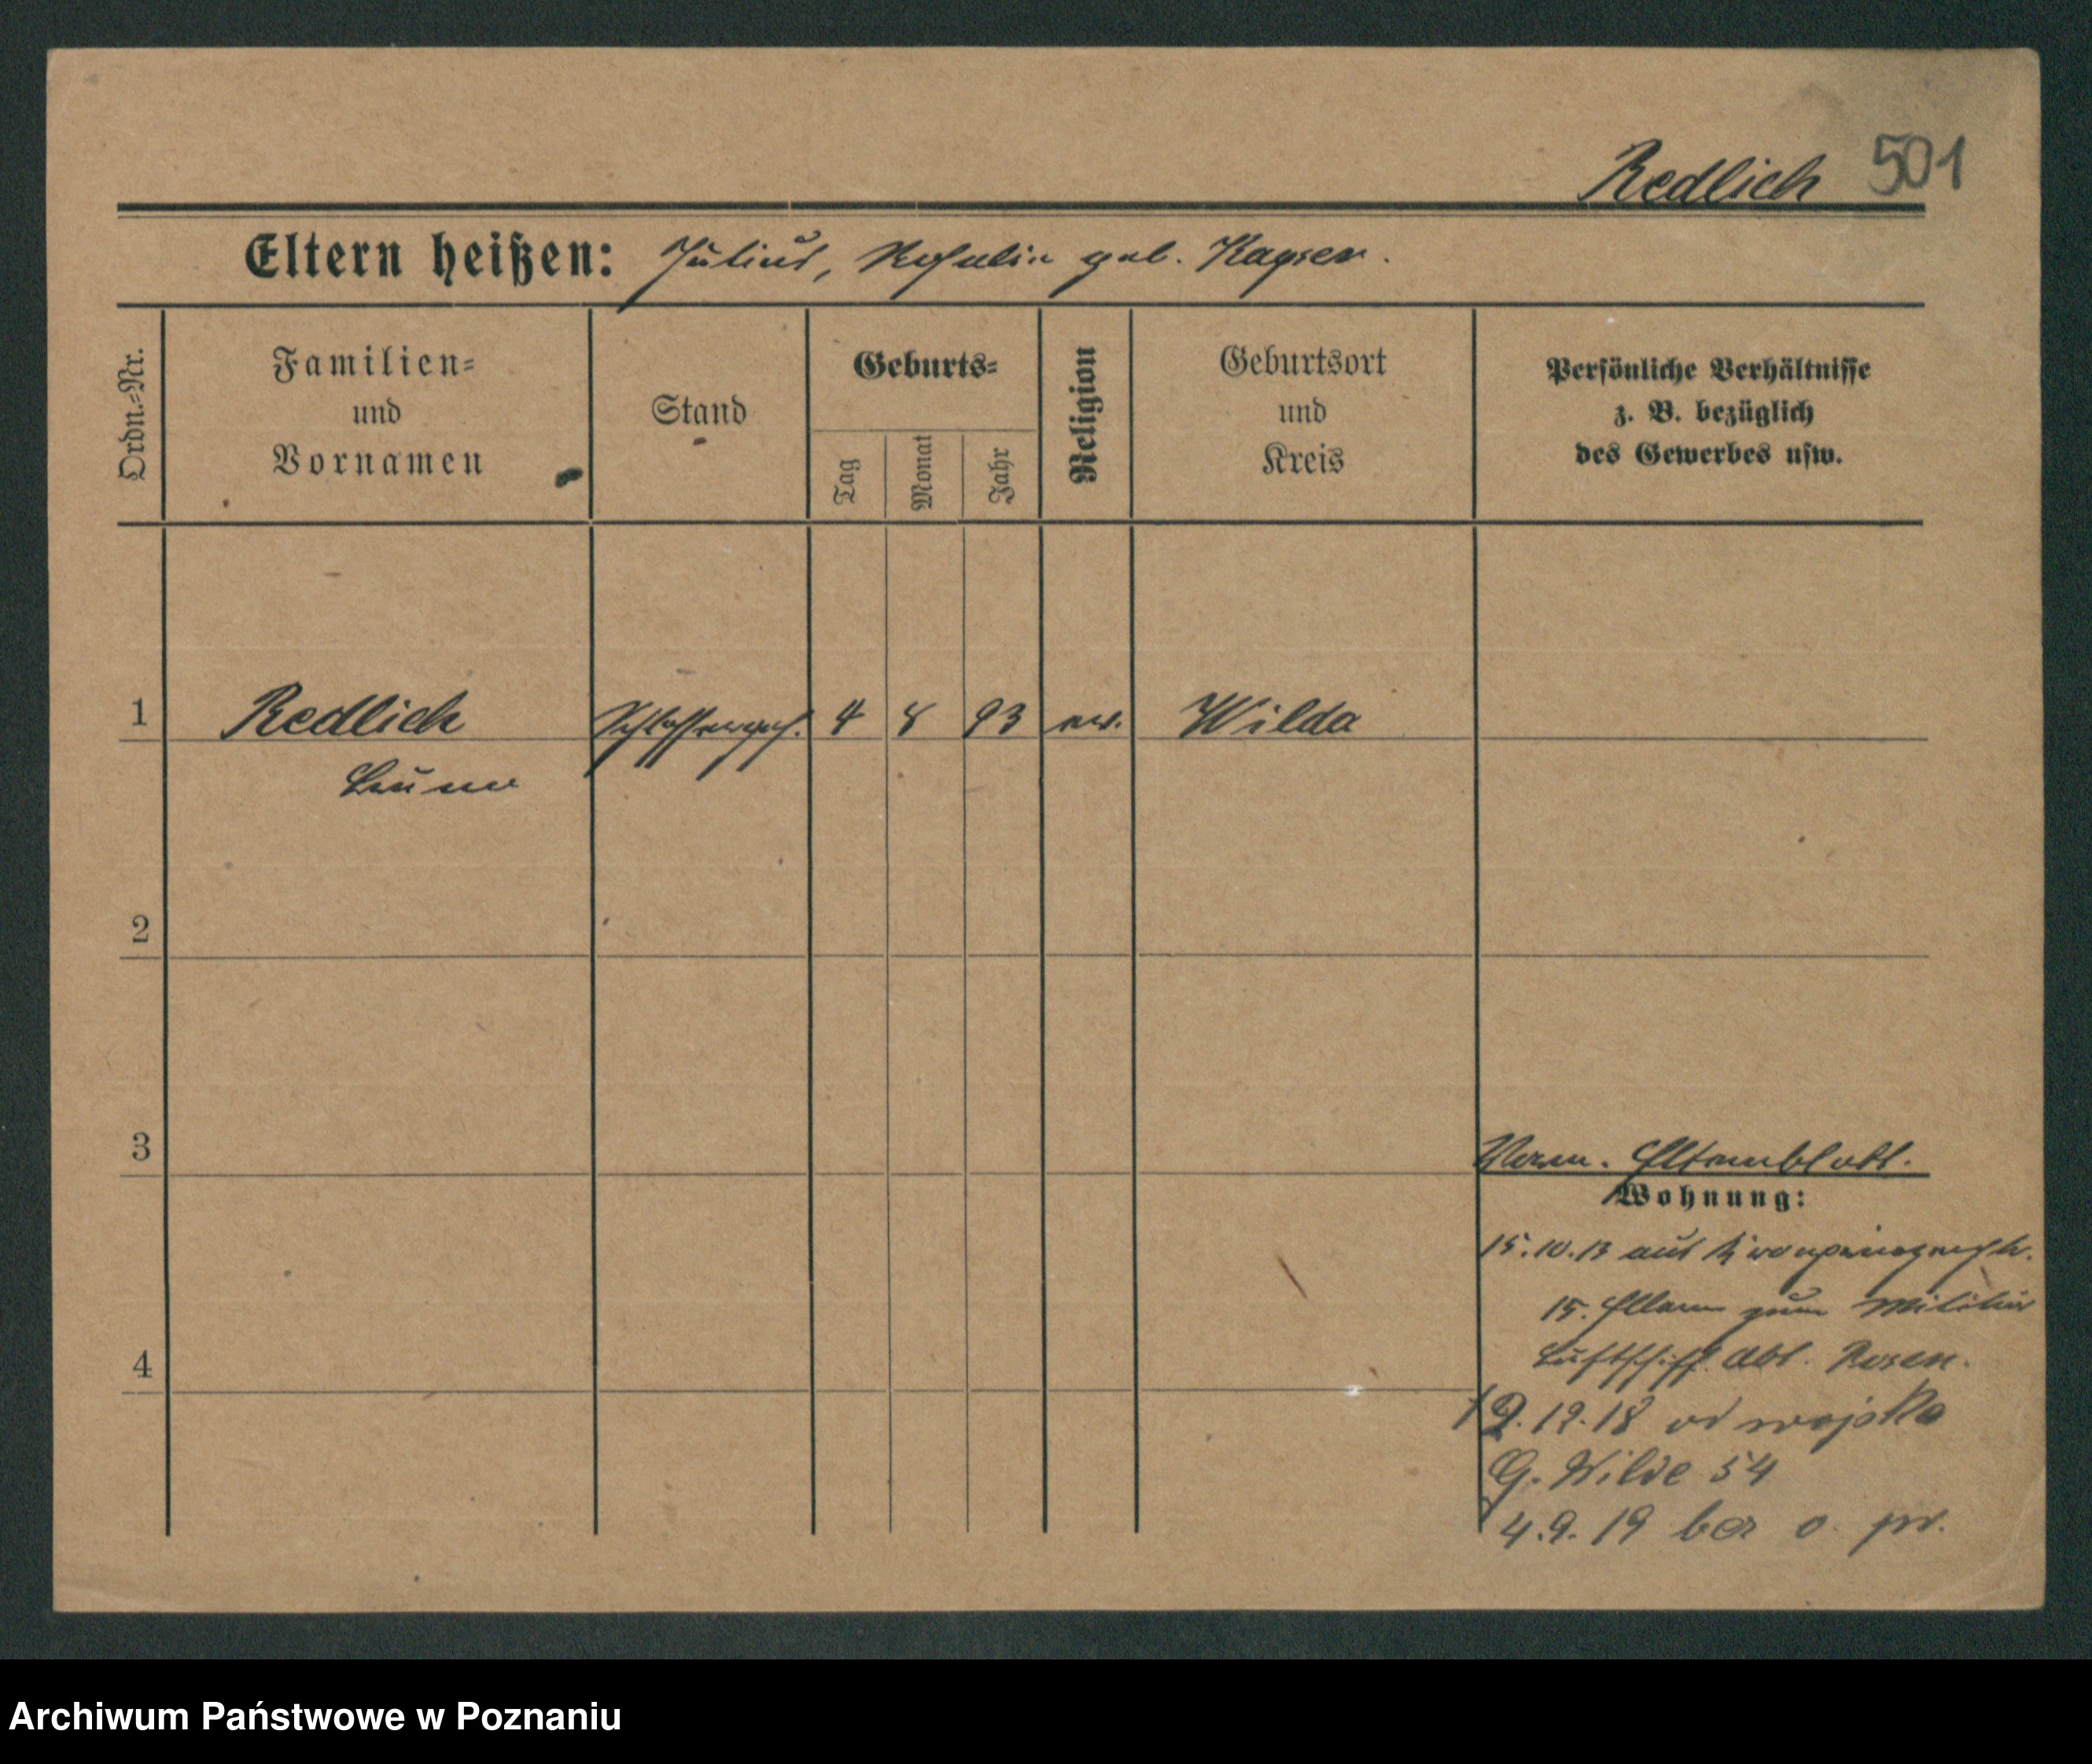 Redlich 501
Eltern heißen: Julius, Rosalie geb. Kayser.
Ordn.-Nr.
Familien-
und
Vornamen
Stand
Geburts-
Tag
Monat
Jahr
Religion
Geburtsort
und
Kreis
Persönliche Verhältnisse
z. B. bezüglich
des Gewerbes usw.
1 Redlich Schlosserges. 4 8 93 ev. Wilda
2
3
Verm. Elternblatt.
Wohnung:
15.10.13 aus
15. zum Militär
4
Luftschiff. Abt. Posen.
19.12.18 od wojska
G. Wilde 54
4.9.19 ber o. pr.
Archiwum Państwowe w Poznaniu